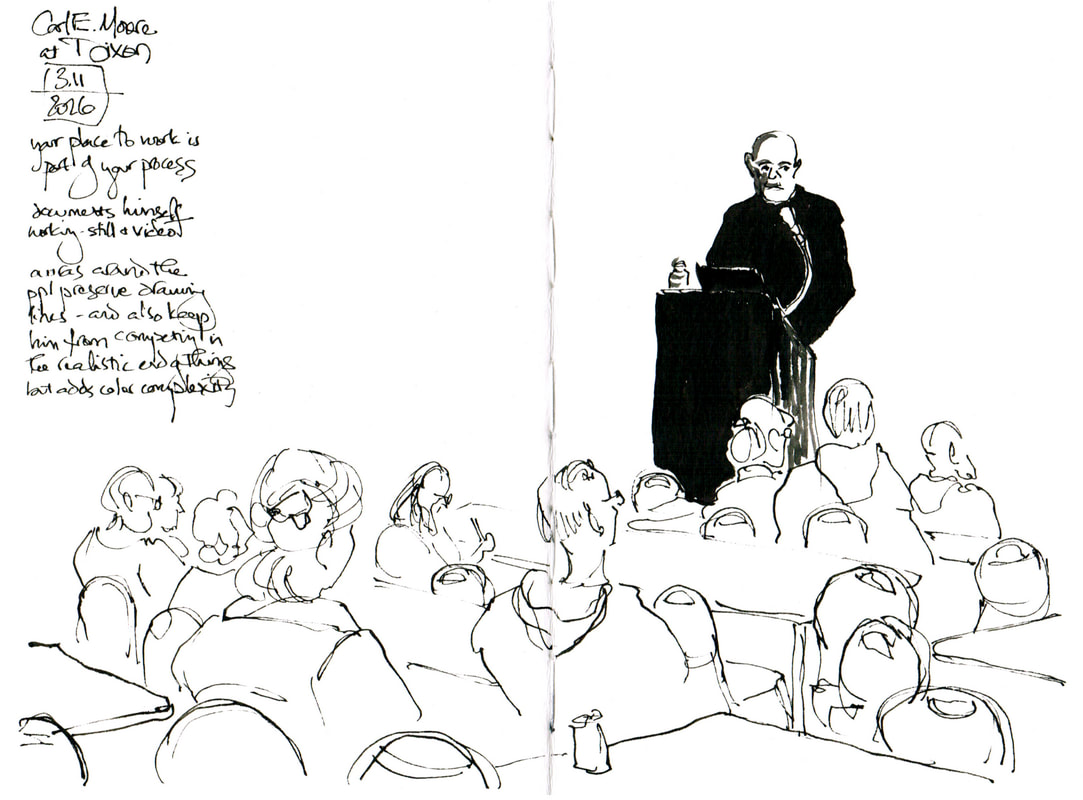 Carl E. Moore
at Dixon
13.11
2026
your place to work is
part of your process
documents himself
working - still & video
areas around the
ppl preserve drawing
lines - and also keep
him from competing in
the realistic end of things
but adds color complexity